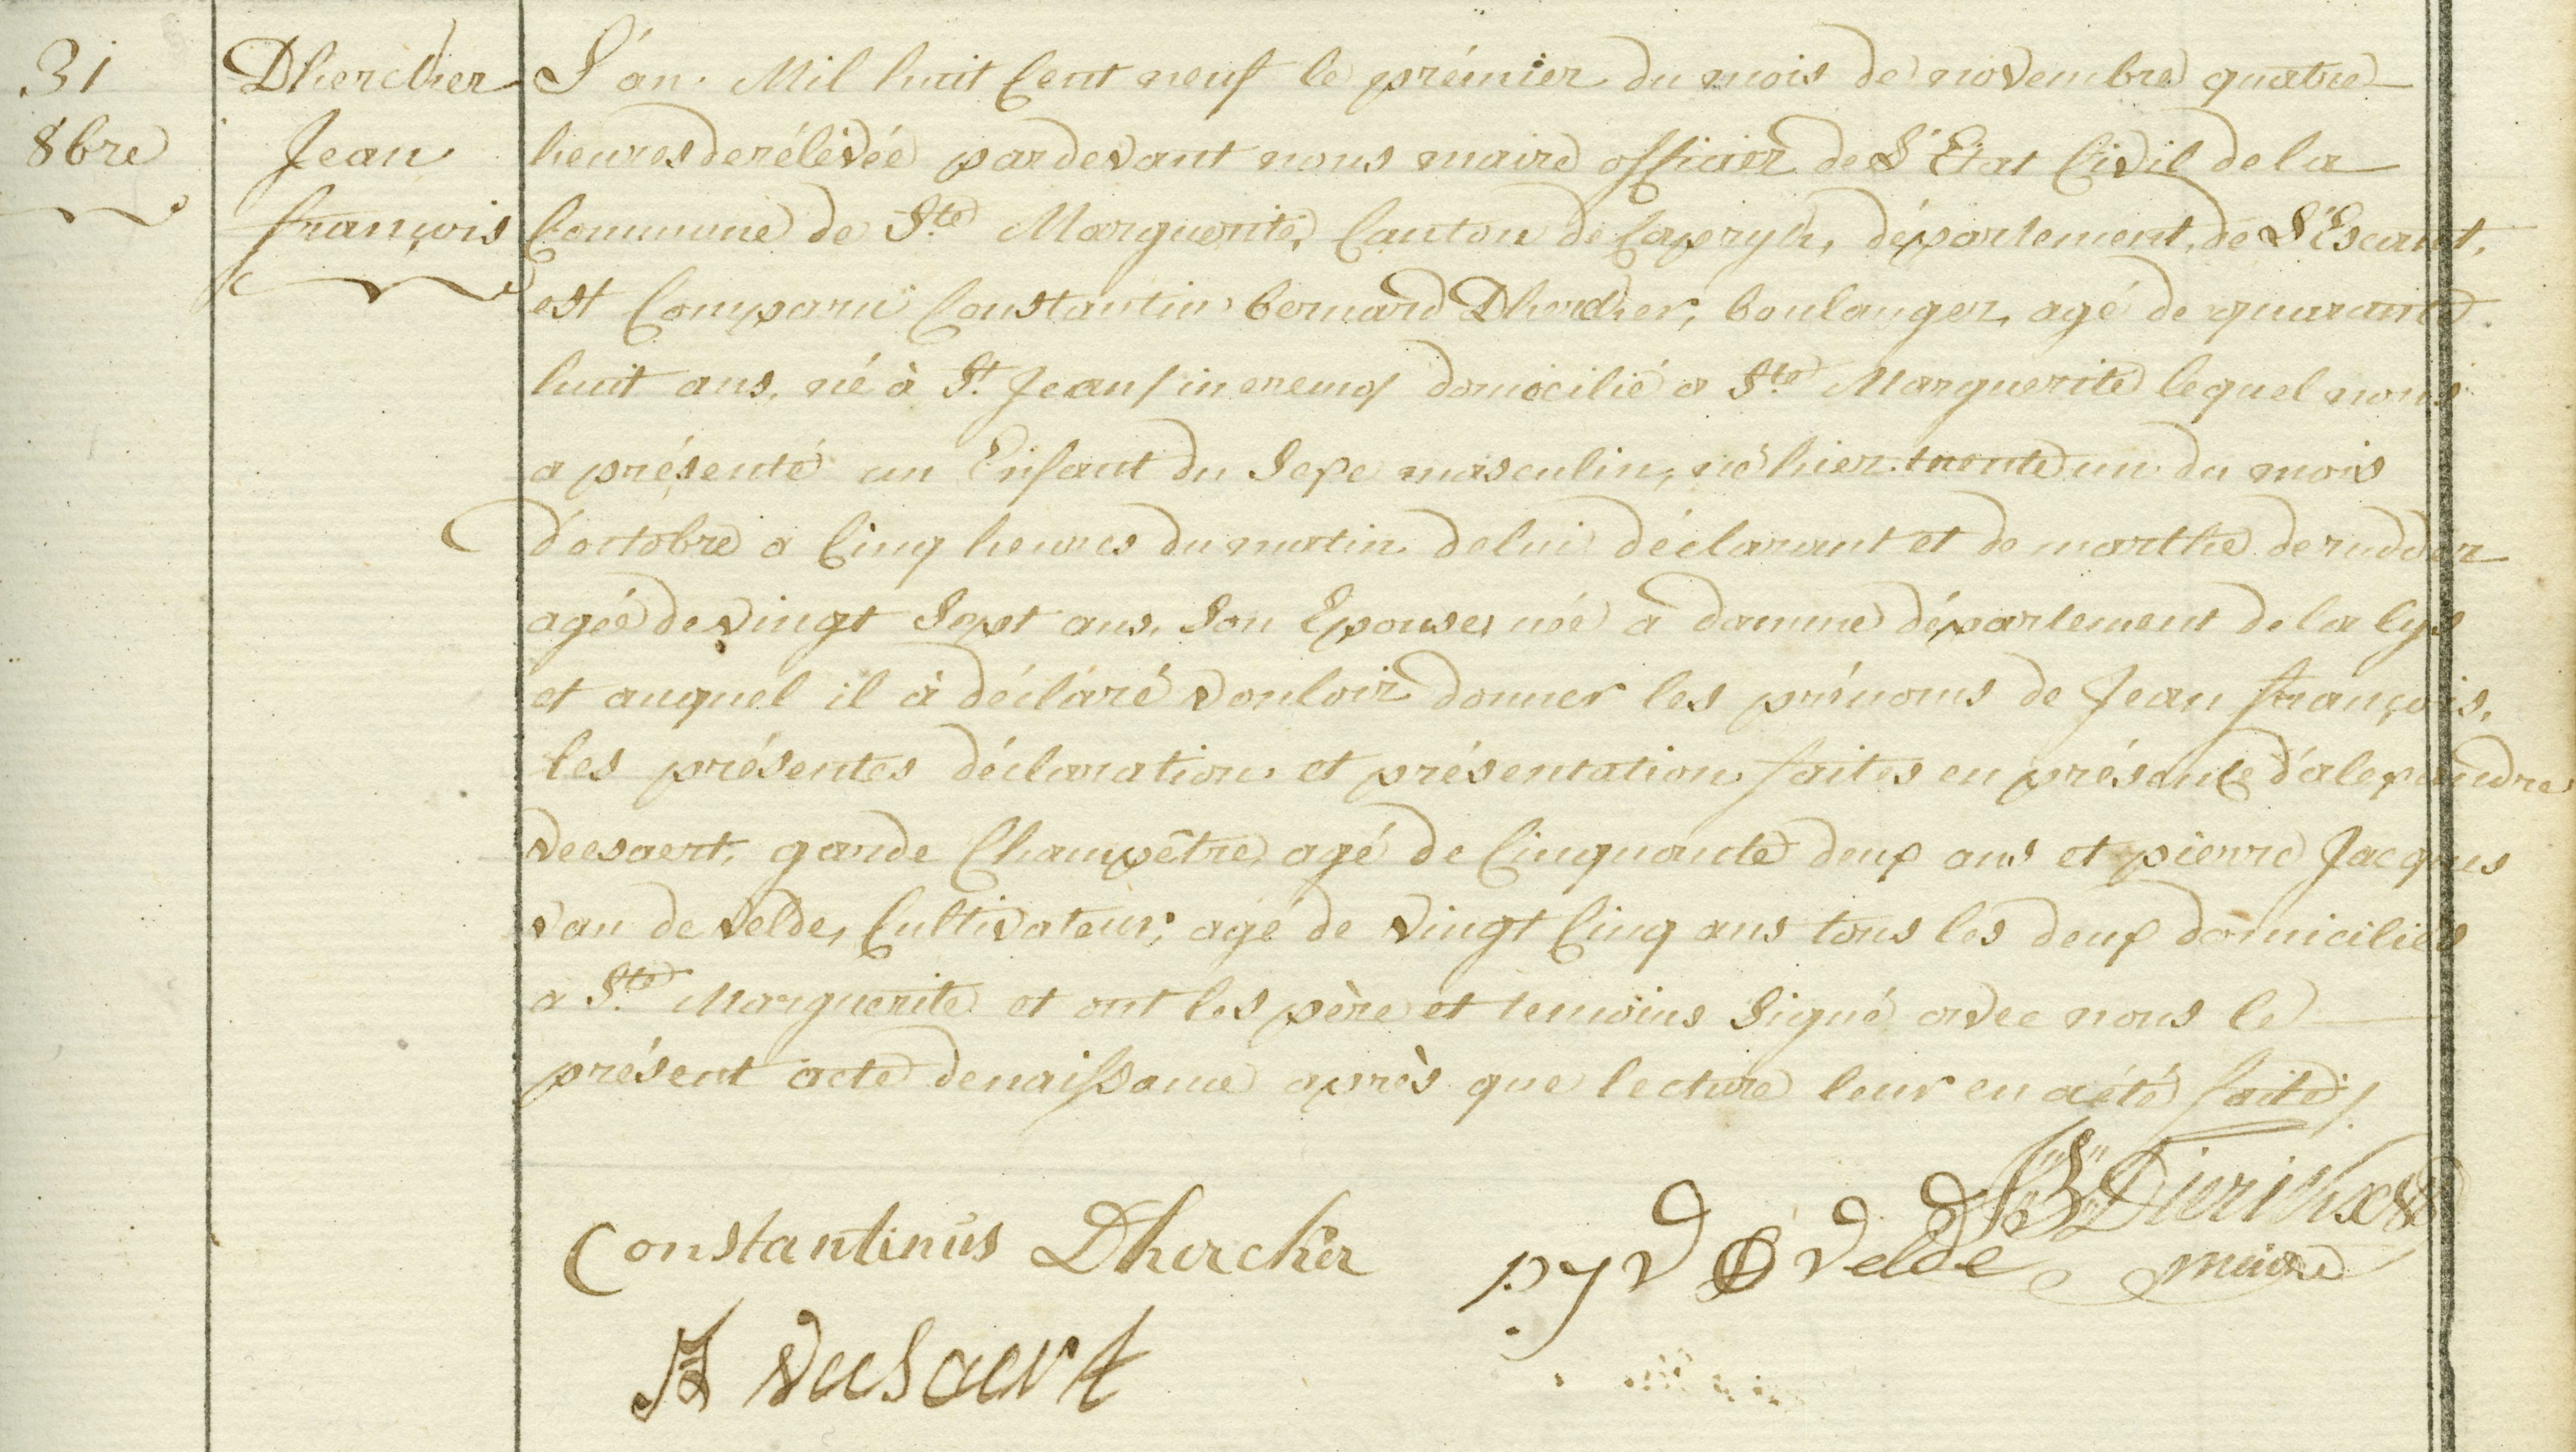 31
8bre
Dhercher
Jean
françois
L'an Mil huit Cent neuf le prémier du mois de novembre quatre
heures derélévéé pardevant nous maire officier de L'Etat Civil de la
Commune de Ste Marguerite, Canton de Capryk, département de L'Escaut,
est Comparu Constantin bernard Dhercher, boulanger, agé de quarante
huit ans, né à St Jean / in eremo / domicilié a Ste Marguerite lequel nous
a présenté un Enfant du Sexe masculin, né hier trente un du mois
d'octobre a Cinq heures du matin de lui déclarant et de marthe derudder
agéé de vingt Sept ans, Son Epouse, née a damme département de la lys
et auquel il à déclaré vouloir donner les prénoms de Jean françois,
les présentes déclaration et présentation faites en présence d'alexandre
veesaert, garde Champêtre, agé de Cinquante deux ans et pierre Jacques
van de velde, Cultivateur, agé de vingt Cinq ans tous les deux domiciliés
a Ste Marguerite et ont les père et temoins Signé avec nous le
présent acte denaissance après que lecture leur en aété faite /
JB Dierickx
Constantinus Dhercher
pj vd velde
maire
A veesaert